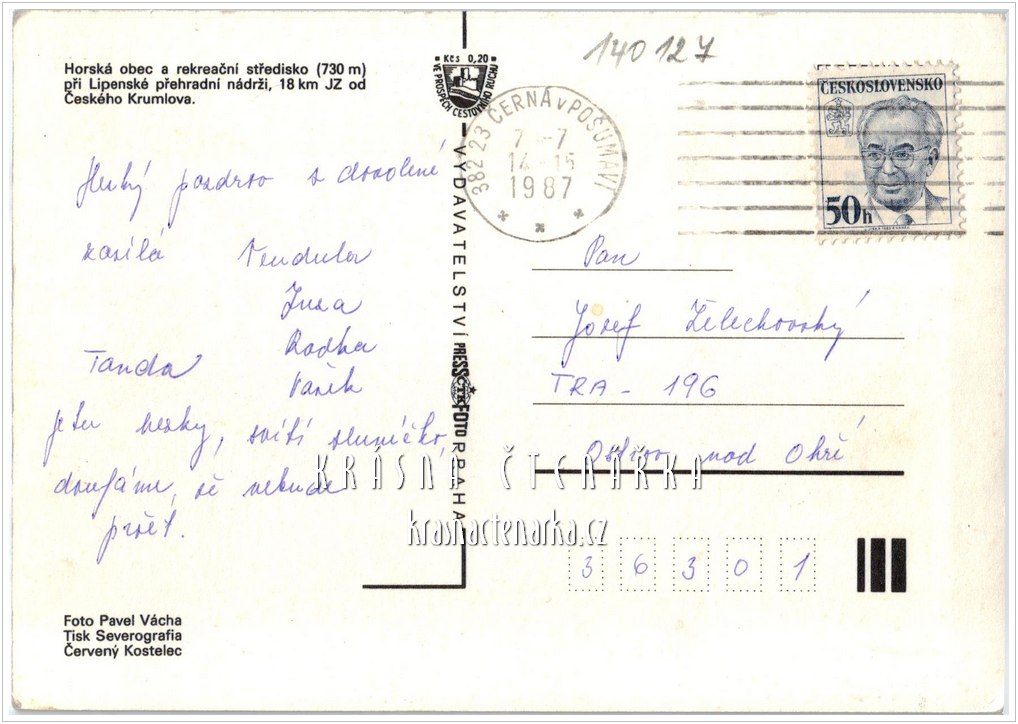 140 127
Horská obec a rekreační středisko (730 m)
při Lipenské přehradní nádrži, 18 km JZ od
Českého Krumlova.
Kčs 0,20
VE PROSPĚCH CESTOVNÍHO RUCHU
382 23 ČERNÁ v POŠUMAVÍ
7.-7.
14-15
1987
ČESKOSLOVENSKO
50h
Hezký pozdrav z dovolené
zasílá Vendula
Zuza
Radka
Vašík
Tanda
je tu hezky, svítí sluníčko,
doufáme, že nebude
pršet.
VYDAVATELSTVÍ PRESSFOTO PRAHA
ČTK
Pan
Josef Želechovský
TRA - 196
Ostrov nad Ohří
36301
KRÁSNÁ ČTENÁŘKA
krasnactenarka.cz
Foto Pavel Vácha
Tisk Severografia
Červený Kostelec